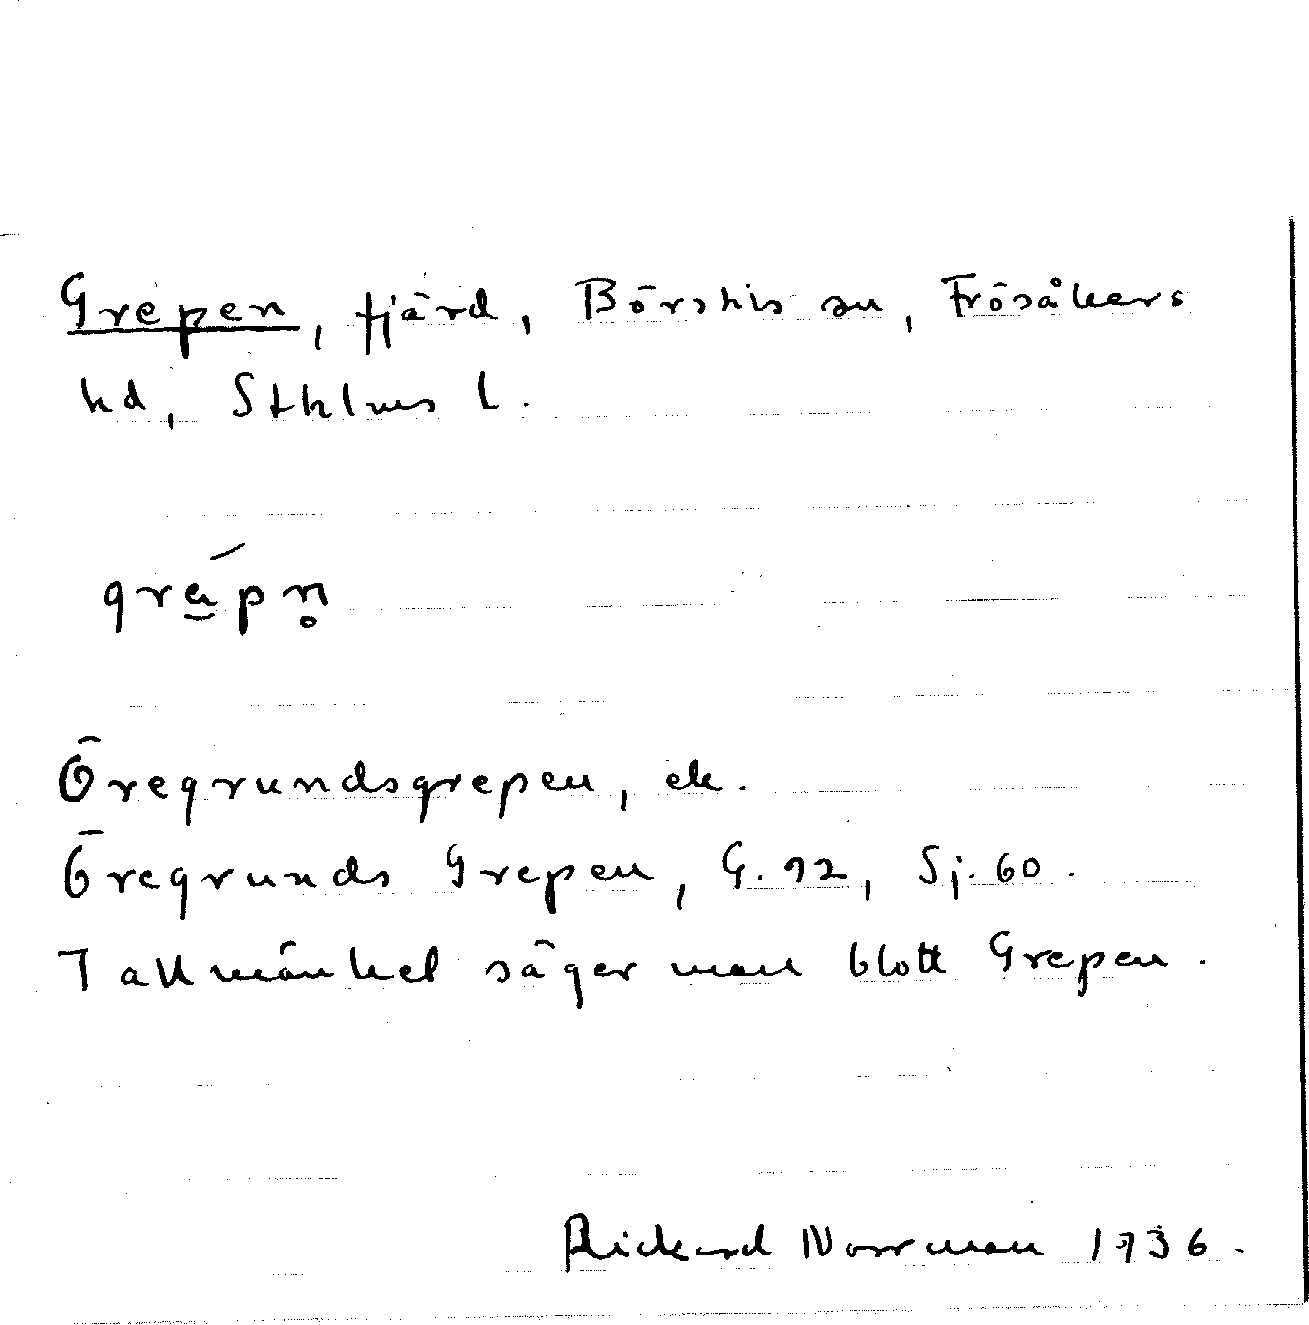 Grepen, fjärd, Börstils sn, Frösåkers
hd, Sthlms l.
Öregrundsgrepen, ek.
Öregrunds Grepen, G. 92, Sj. 60.
I allmänhet säger man blott Grepen.
Rickard Norrman 1936.